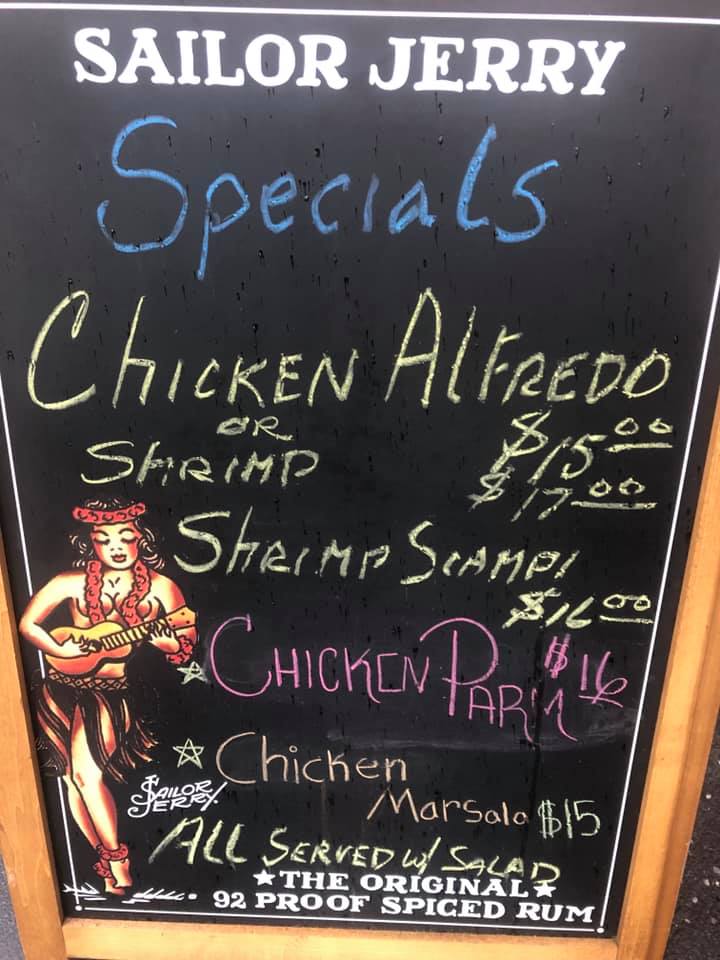 SAILOR JERRY
Specials
CHICKEN ALFREDO
OR $15.00
SHRIMP $17.00
SHRIMP SCAMPI
$16.00
CHICKEN PARM $16
Chicken
Marsala $15
SAILOR
JERRY
ALL SERVED W/ SALAD
★THE ORIGINAL★
92 PROOF SPICED RUM